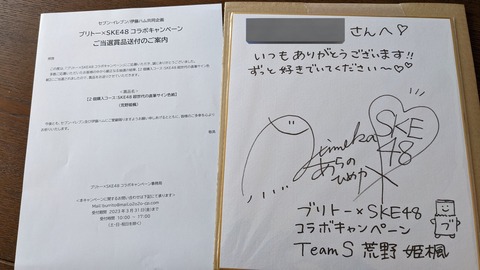 セブン-イレブン/伊藤ハム共同企画
ブリトー×SKE48 コラボキャンペーン
ご当選賞品送付のご案内
<賞品名>
【2個購入コース:SKE48 超世代の直筆サイン色紙】
(荒野姫楓)
敬具
ブリトー×SKE48 コラボキャンペーン事務局
受付期間 2023年3月31日(金)まで
受付時間 10:00 ~ 17:00
(土・日・祝日を除く)
さんへ♡
いつもありがとうございます!!
ずっと好きでいてください~♡♡
Himeka
あらの
ひめか
SKE
48
ブリトー×SKE48
コラボキャンペーン
TeamS 荒野 姫楓
ブ